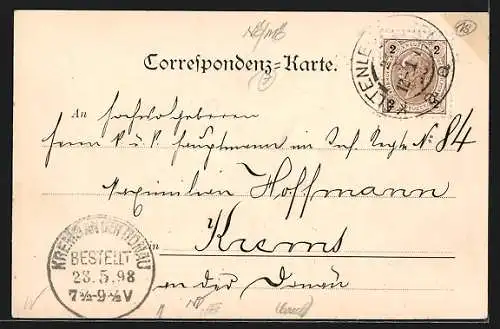 Correspondenz=Karte.
KALTENLE
2 2
An Hochwolgeboren
Herrn k. u. k. Hauptmann im Inf. Regte No 84
Maximilian Hoffmann
in Krems
an der Donau
KREMS AN DER DONAU
BESTELLT
23.5.98
7½-9½V